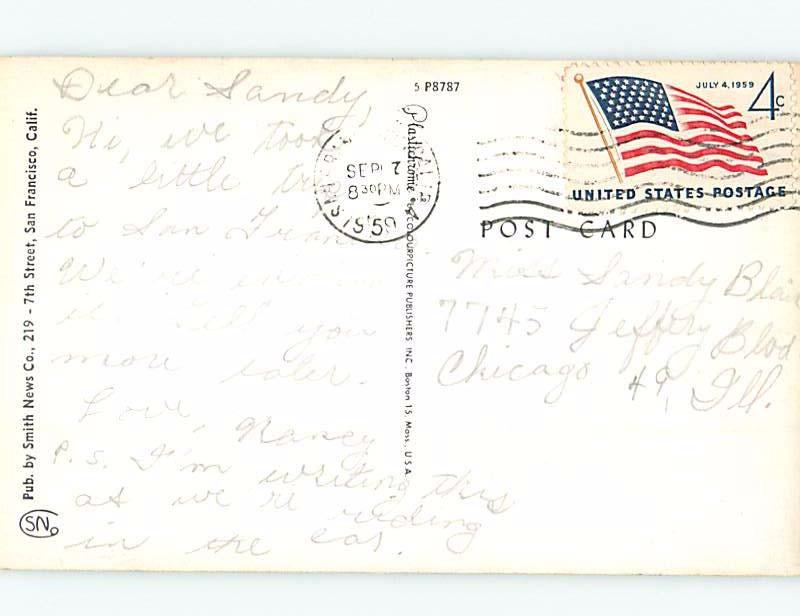 Dear Sandy,
Hi, we took
a little
to San
We're
it. Tell you
more later.
Love,
Nancy
P.S. I'm writing this
as we're riding
in the car.
5 P8787
SEP 7
8 30 PM
1959
JULY 4, 1959
4c
UNITED STATES POSTAGE
POST CARD
Miss Sandy Blair
7745 Jeffery Blvd
Chicago 49, Ill.
Plastichrome
COLOURPICTURE PUBLISHERS, INC. Boston 15, Mass., U.S.A.
Pub. by Smith News Co., 219 - 7th Street, San Francisco, Calif.
SNo